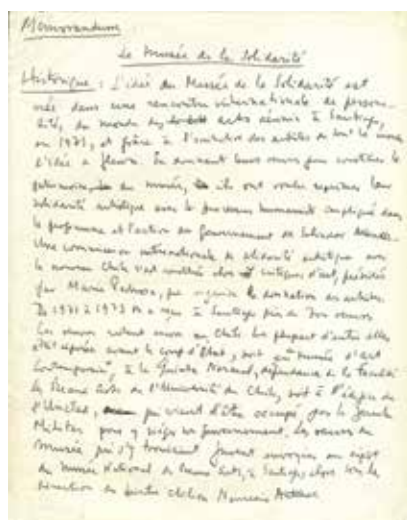 Mémorandum
Le Musée de la Solidarité
Historique : L'idée du Musée de la Solidarité est
née dans une rencontre internationale de person-
alités du monde des arts réunie à Santiago,
en 1971, et grâce à l'invitation des artistes de tout le monde
l'idée a fleuri. En donnant leurs œuvres pour constituer le
patrimoine du musée, ils ont voulu exprimer leur
solidarité artistique avec le processus humaniste impliqué dans
le programme et l'action du Gouvernement de Salvador
Une commission internationale de solidarité artistique avec
le nouveau Chili s'est constituée alors critiques d'art, présidée
par Mario Pedrosa, pour organiser la donation des artistes.
De 1971 à 1973 on a reçu à Santiago près de œuvres
Ces œuvres encore au Chili. La plupart d'entre elles
était exposée avant le coup d'Etat, soit au musée d'art
Contemporain, à la Quinta Normal, dépendance de la Faculté
de Beaux Arts de l'Université du Chili, soit à l'édifice de
l'Unctad, qui vient d'être occupé par la Junte
Militaire pour y siéger un gouvernement. Les œuvres du
musée qui s'y trouvaient furent envoyées au
du musée National de Beaux Arts, à Santiago, alors sous la
direction du peintre chilien